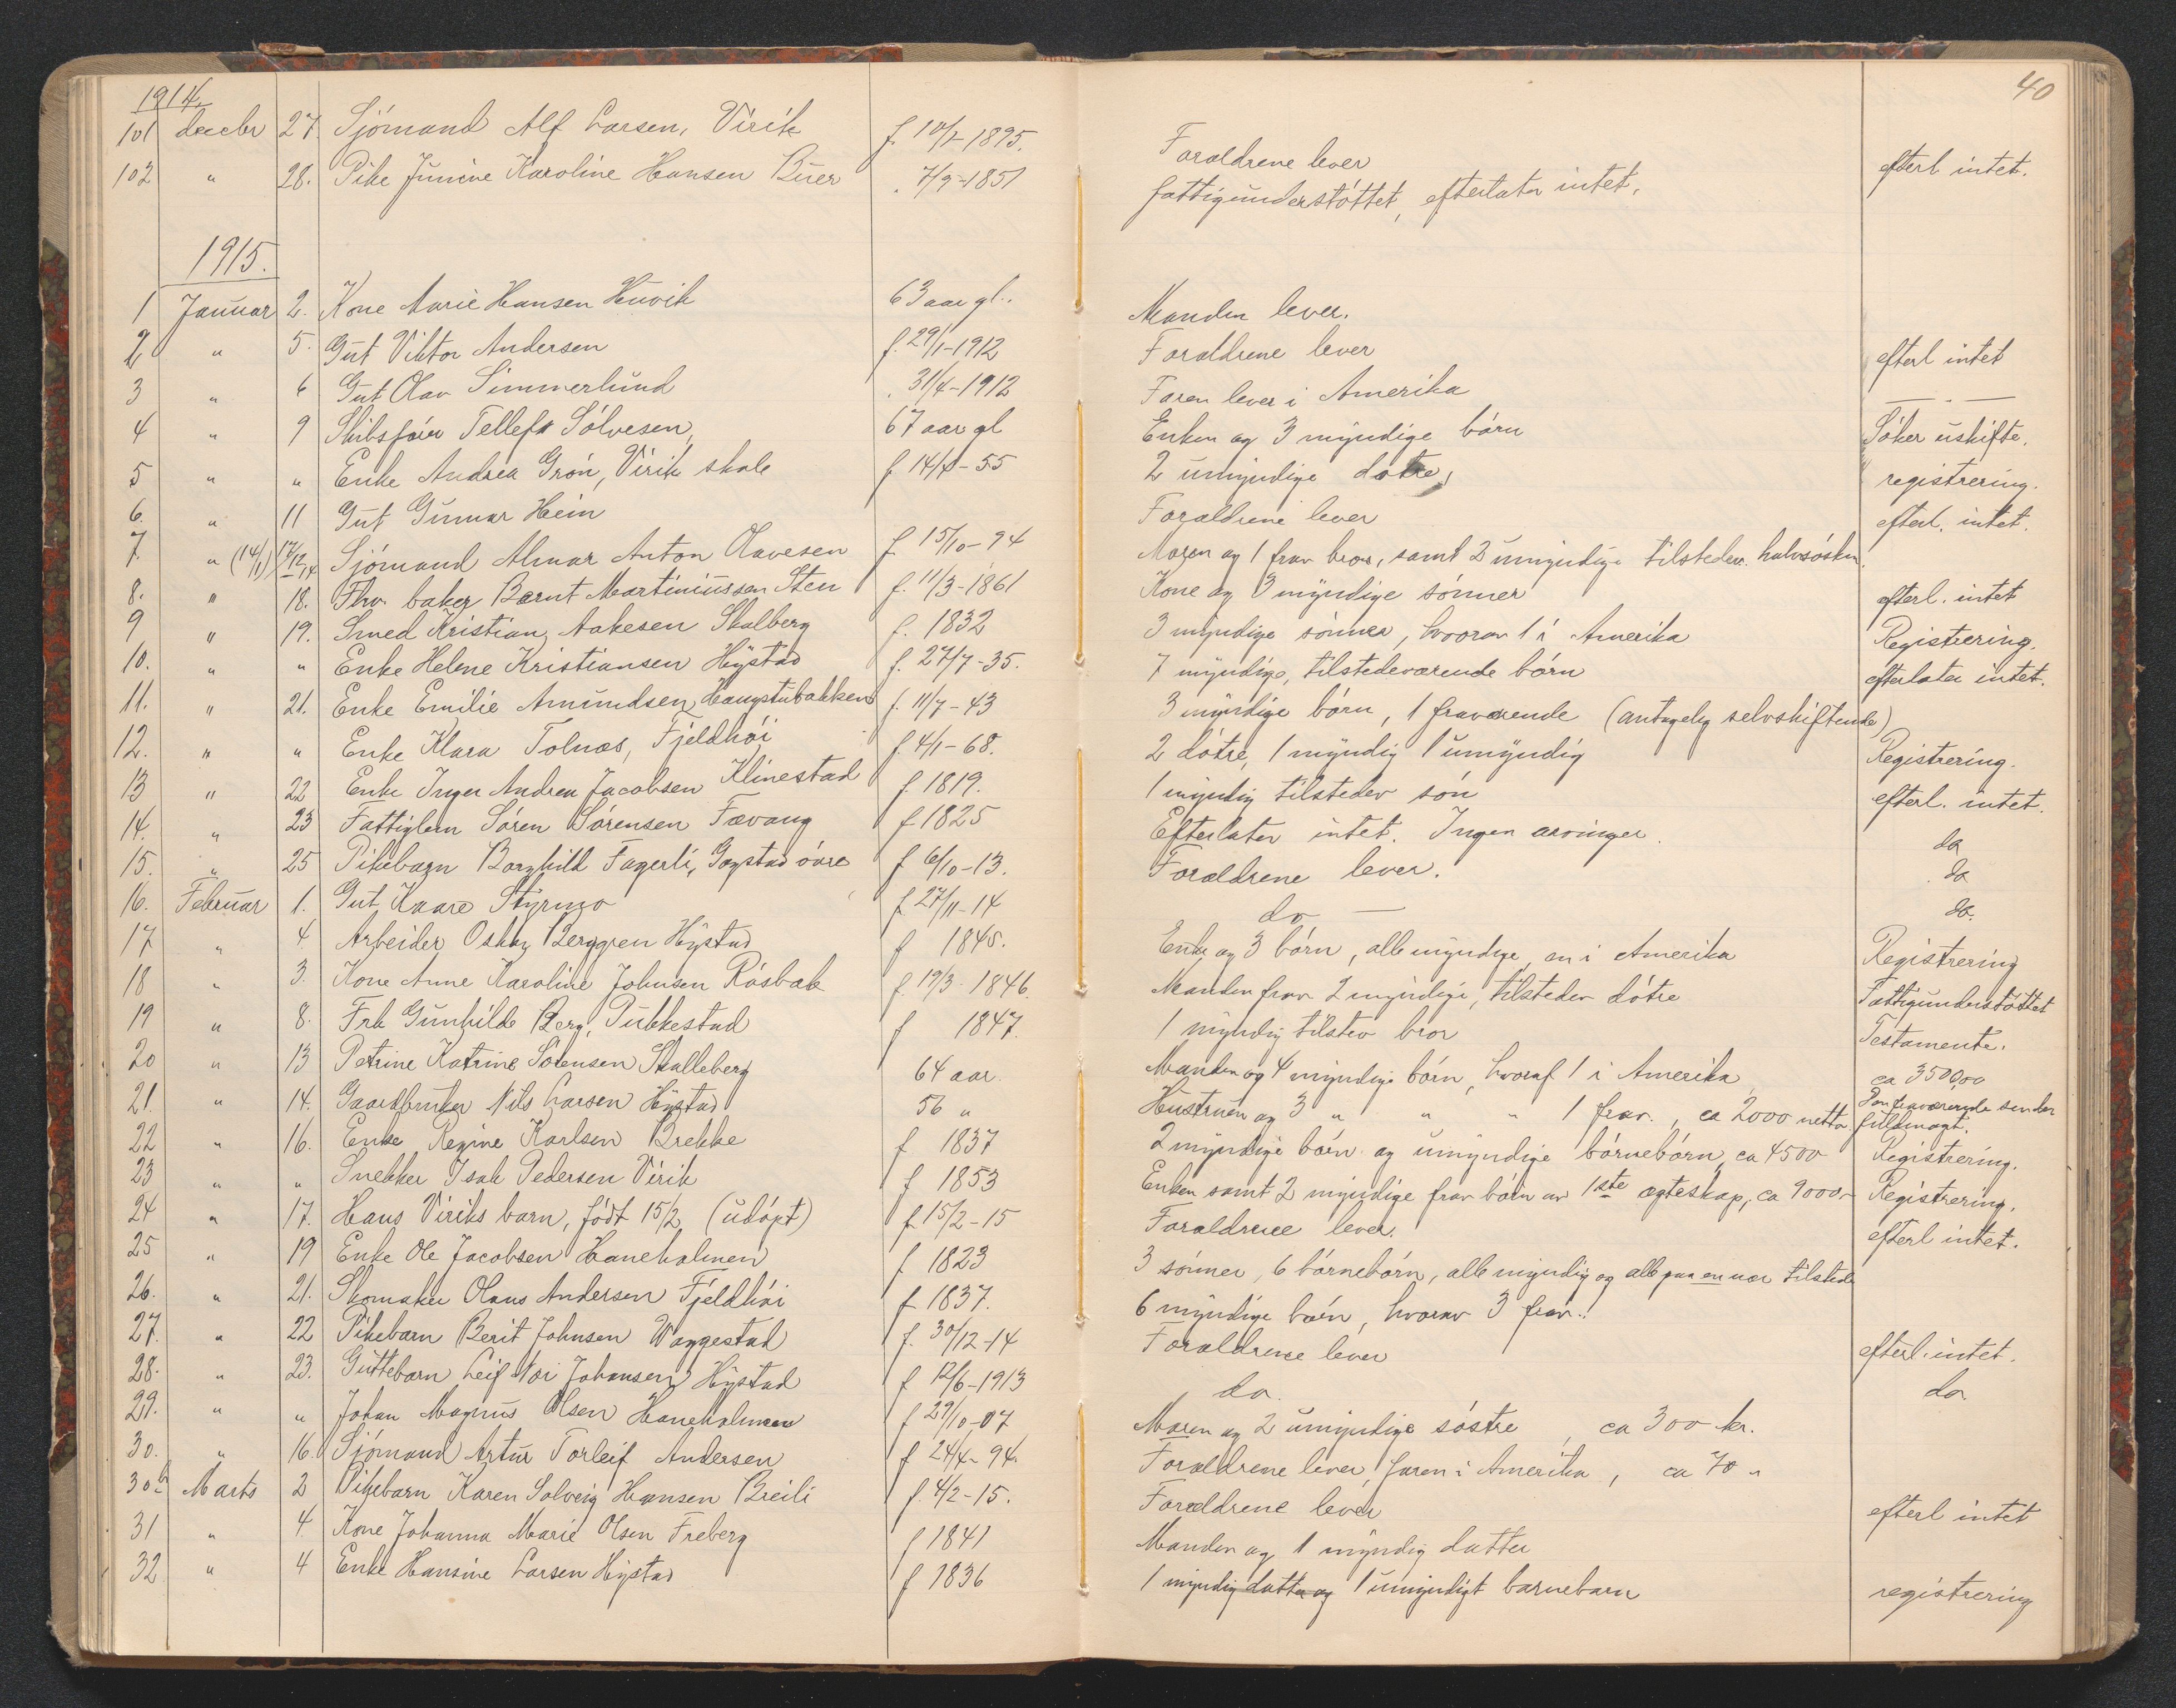 40
1914.
101 decbr 27 Sjómand Alf Larsen, Virik f. 10/1-1895. Forældrene lever efterl intet.
102 " 28. Pike Junine Karoline Hansen Buer . 7/9-1851 fattigunderstóttet, efterlater intet.
1915.
1 Januar 2. Kone Marie Hansen Huvik 63 aar gl.. Manden lever.
2 " 5. Gut Viktor Andersen f. 29/1-1912 Forældrene lever efterl intet
3 " 6 Gut Olav Simmerlund . 31/4-1912 Faren lever i Amerika — " —
4 " 9 Skibsfóer Tellef Sólvesen, 67 aar gl Enken og 3 myndige bórn Sóker uskifte.
5 " " Enke Andrea Grón, Virik skole f 14/4-55 2 umyndige døtre, registrering.
6. " 11 Gut Gunnar Hein Forældrene lever efterl. intet.
7. " (14/1) 17/12 14 Sjómand Almar Anton Olavesen f 15/10-94 Moren og 1 frav bror, samt 2 umyndige tilstedev. halvsósken.
8. " 18. Fhv. baker Bernt Martiniussen Sten f. 11/3-1861 Kone og 3 myndige sónner efterl. intet
9 " 19. Smed Kristian Aakesen Skalberg f. 1832 3 myndige sónner, hvorav 1 i Amerika Registrering.
10. " " Enke Helene Kristiansen Hystad f. 27/7-35. 7 myndige, tilstedeværende bórn efterlater intet.
11. " 21. Enke Emilie Amundsen, Haugstubakken f. 11/7-43 3 myndige bórn, 1 fraværende (antagelig selvskiftende)
12. " " Enke Klara Tolnæs, Fjeldhói f. 4/1-68. 2 dótre, 1 myndig 1 umyndig Registrering.
13 " 22 Enke Inger Andrea Jacobsen Klinestad f 1819. 1 myndig tilstedev són efterl. intet.
14. " 23 Fattiglem Sóren Sórensen Fævang f 1825 Efterlater intet. Ingen arvinger. do
15. " 25 Pikebarn Borghild Fagerli, Gogstad óvre f 6/10-13. Forældrene lever. do
16. Februar 1. Gut Kaare Styrmo f. 27/11-14 do — do.
17 " 4. Arbeider Oskar Berggren Hystad f 1845. Enke og 3 bórn, alle myndige, en i Amerika Registrering
18 " 3. Kone Anne Karoline Johnsen Rósbak f. 19/3-1846. Manden frav 2 myndige, tilstedev dótre Fattigunderstóttet
19 " 8. Frk Gunhilde Berg, Pukkestad f 1847. 1 myndig tilstev bror Testamente.
20 " 13 Petrine Katrine Sórensen Skalleberg 64 aar. Manden og 4 myndige bórn, hvoraf 1 i Amerika ca 3500,00
21. " 14. Gaardbruker Nils Larsen Hystad 56 " Hustruen og 3 " " " 1 frav., ca 2000 netto. Den fraværende sender fuldmagt.
22 " 16. Enke Regine Karlsen Brekke f 1837 2 myndige bórn og umyndige bórnebórn, ca 4500 Registrering.
23 " " Snekker Isak Pedersen Virik f 1853 Enken samt 2 myndige frav bórn av 1ste ægteskap, ca 9000,- Registrering.
24 " 17. Hans Viriks barn, fódt 15/2 (udópt) f. 15/2-15 Forældrene lever. efterl intet.
25 " 19 Enke Ole Jacobsen Haneholmen f 1823 3 sónner, 6 bórnebórn, alle myndig og alle paa en nær tilstede
26. " 21. Skomaker Olaus Andersen Fjeldhói f 1837. 6 myndige bórn, hvorav 3 frav.!
27. " 22 Pikebarn Berit Johnsen Waggestad f. 30/12-14 Forældrene lever efterl. intet.
28. " 23. Guttebarn Leif Nói Johansen Hystad f 12/6-1913 do. do.
29. " " Johan Magnus Olsen Haneholmen f 29/10-07 Moren og 2 umyndige sóstre, ca 300 kr.
30. " 16. Sjómand Artur Torleif Andersen f 24/4-94. Forældrene lever, faren i Amerika, ca 70 "
30b Marts 2 Pikebarn Karen Solveig Hansen Breili f. 4/2-15. Forældrene lever efterl intet
31 " 4. Kone Johanna Marie Olsen Freberg f 1841 Manden og 1 myndig datter
32 " 4 Enke Hansine Larsen Hystad f 1836 1 myndig datter og 1 umyndigt barnebarn registrering